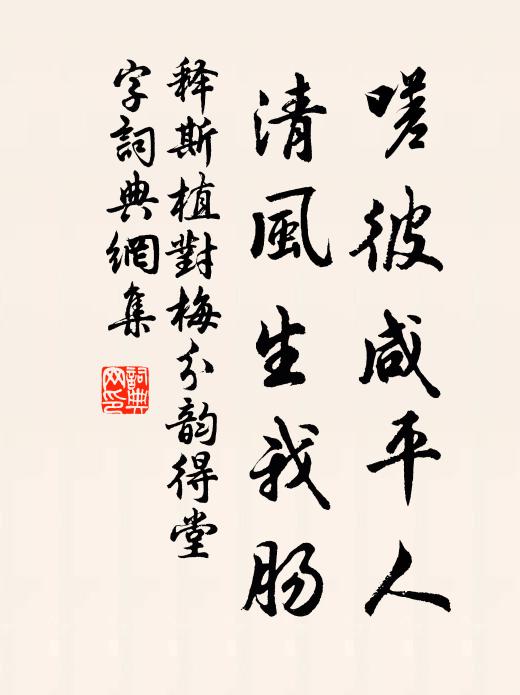 嗟彼咸平人
清風生我肠
释斯植對梅分韵得堂
字詞典網集
詞典網印